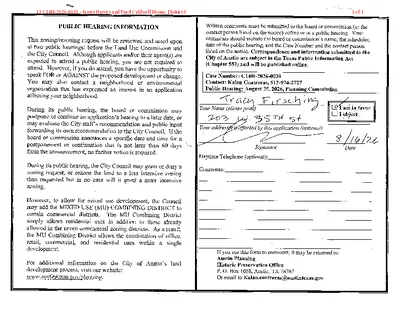 PUBLIC HEARING INFORMATION
This zoning/rezoning request will be reviewed and acted upon
at two public hearings: before the Land Use Commission and
the City Council. Although applicants and/or their agent(s) are
expected to attend a public hearing, you are not required to
attend. However, if you do attend, you have the opportunity to
speak FOR or AGAINST the proposed development or change.
You may also contact a neighborhood or environmental
organization that has expressed an interest in an application
affecting your neighborhood.
During its public hearing, the board or commission may
postpone or continue an application's hearing to a later date, or
may evaluate the City staff's recommendation and public input
forwarding its own recommendation to the City Council. If the
board or commission announces a specific date and time for a
postponement or continuation that is not later than 60 days
from the announcement, no further notice is required.
During its public hearing, the City Council may grant or deny a
zoning request, or rezone the land to a less intensive zoning
than requested but in no case will it grant a more intensive
zoning.
However, to allow for mixed use development, the Council
may add the MIXED USE (MU) COMBINING DISTRICT to
certain commercial districts. The MU Combining District
simply allows residential uses in addition to those already
allowed in the seven commercial zoning districts. As a result,
the MU Combining District allows the combination of office,
retail, commercial, and residential uses within a single
development.
For additional information on the City of Austin's land
development process, visit our website:
www.austintexas.gov/planning.
1 of 1
Written comments must be submitted to the board or commission (or the
contact person listed on the notice) before or at a public hearing. Your
comments should include the board or commission's name, the scheduled
date of the public hearing, and the Case Number and the contact person
listed on the notice. Correspondence and information submitted to the
City of Austin are subject to the Texas Public Information Act
(Chapter 552) and will be published online.
Case Number:
Contact: Kalan Contreras, 512-974-2727
Public Hearing: August 25, 2026, Planning Commission
Tracy Firsching
Your Name (please print)
I am in favor
I object
203 W 35TH St
Your address(es) affected by this application (optional)
8/16/26
Signature
Date
Daytime Telephone (optional):
Comments:
If you use this form to comment, it may be returned to:
Austin Planning
Historic Preservation Office
P.O. Box 1088, Austin, TX 78767
Or email to